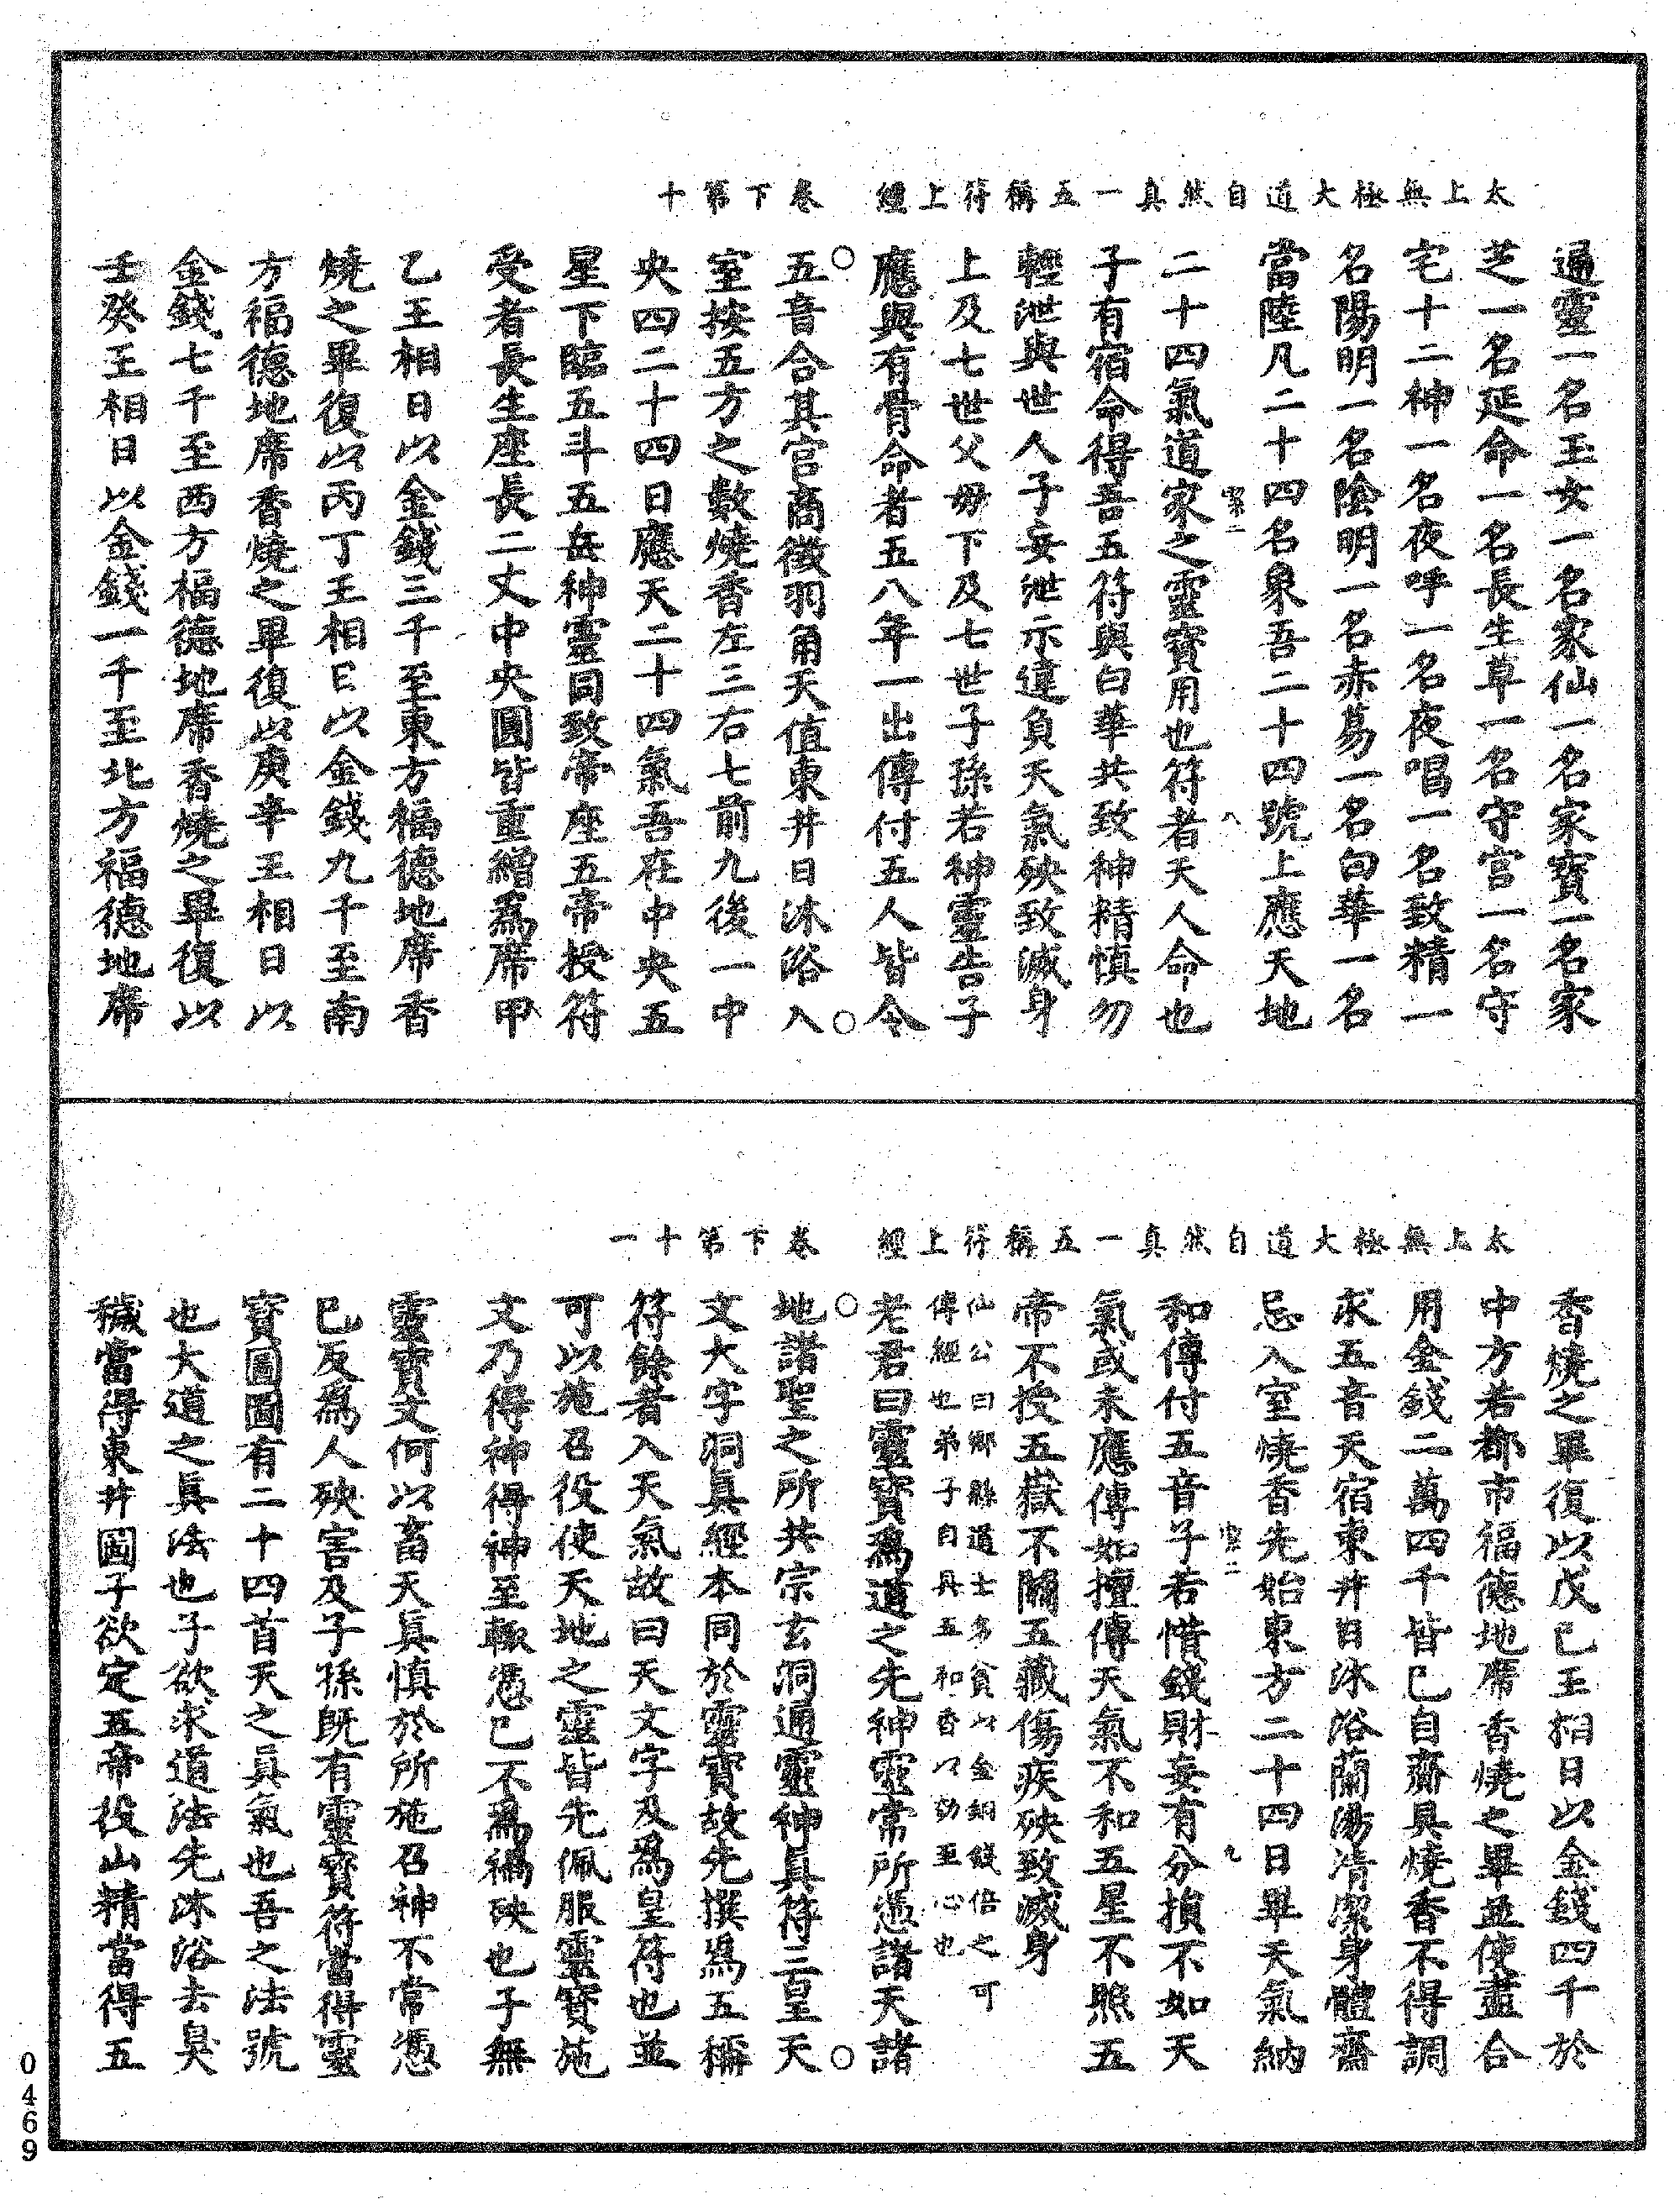 太上無極大道自然真一五稱符上經　卷下第十
通靈一名玉女一名家仙一名家寶一名家
芝一名延命一名長生草一名守宫一名守
宅十二神一名夜呼一名夜唱一名致精一
名陽明一名陰明一名赤萵一名白華一名
當陸凡二十四名象吾二十四號上應天地
二十四氣道家之靈寶用也符者天人命也
子有宿命得吾五符與白華共致神精慎勿
輕泄與世人子妄泄示違負天氣殃致滅身
上及七世父母下及七世子孫若神靈告子
應與有骨命者五八年一出傳付五人皆令
五音合其宫商徵羽角天值東井日沐浴入
室按五方之數燒香左三右七前九後一中
央四二十四日應天二十四氣吾在中央五
星下臨五斗五岳神靈同致帝座五帝授符
受者長生座長二丈中央圓皆重繒爲席甲
乙王相日以金錢三千至東方福德地席香
燒之畢復以丙丁王相日以金錢九千至南
方福德地席香燒之畢復以庚辛王相日以
金錢七千至西方福德地席香燒之畢復以
壬癸王相日以金錢一千至北方福德地席
太上無極大道自然真一五稱符上經　卷下第十一
香燒之畢復以戊己王相日以金錢四千於
中方若都市福德地席香燒之畢並使盡合
用金錢二萬四千皆已自齋具燒香不得調
求五音天宿東井日沐浴蘭湯清潔身體齋
忌入室燒香先始東方二十四日畢天氣納
和傳付五音子若惜錢財妄有分損不如天
氣或未應傳如擅傳天氣不和五星不照五
帝不授五嶽不關五藏傷疾殃致滅身
仙公曰鄉縣道士多貧以金銅錢倍之可
傳經也弟子自具五和香以効至心也
老君曰靈寶爲道之先神靈常所憑諸天諸
地諸聖之所共宗玄洞通靈神真符三皇天
文大字洞真經本同於靈寶故先撰爲五稱
符餘者入天氣故曰天文字及爲皇符也並
可以施召役使天地之靈皆先佩服靈寶施
文乃得神得神至輙憑已不爲禍殃也子無
靈寶文何以畜天真慎於所施召神不常憑
已反爲人殃害及子孫既有靈寶符當得靈
寶圖圖有二十四首天之真氣也吾之法號
也大道之真法也子欲求道法先沐浴去臭
穢當得東井圖子欲定五帝役山精當得五
0469